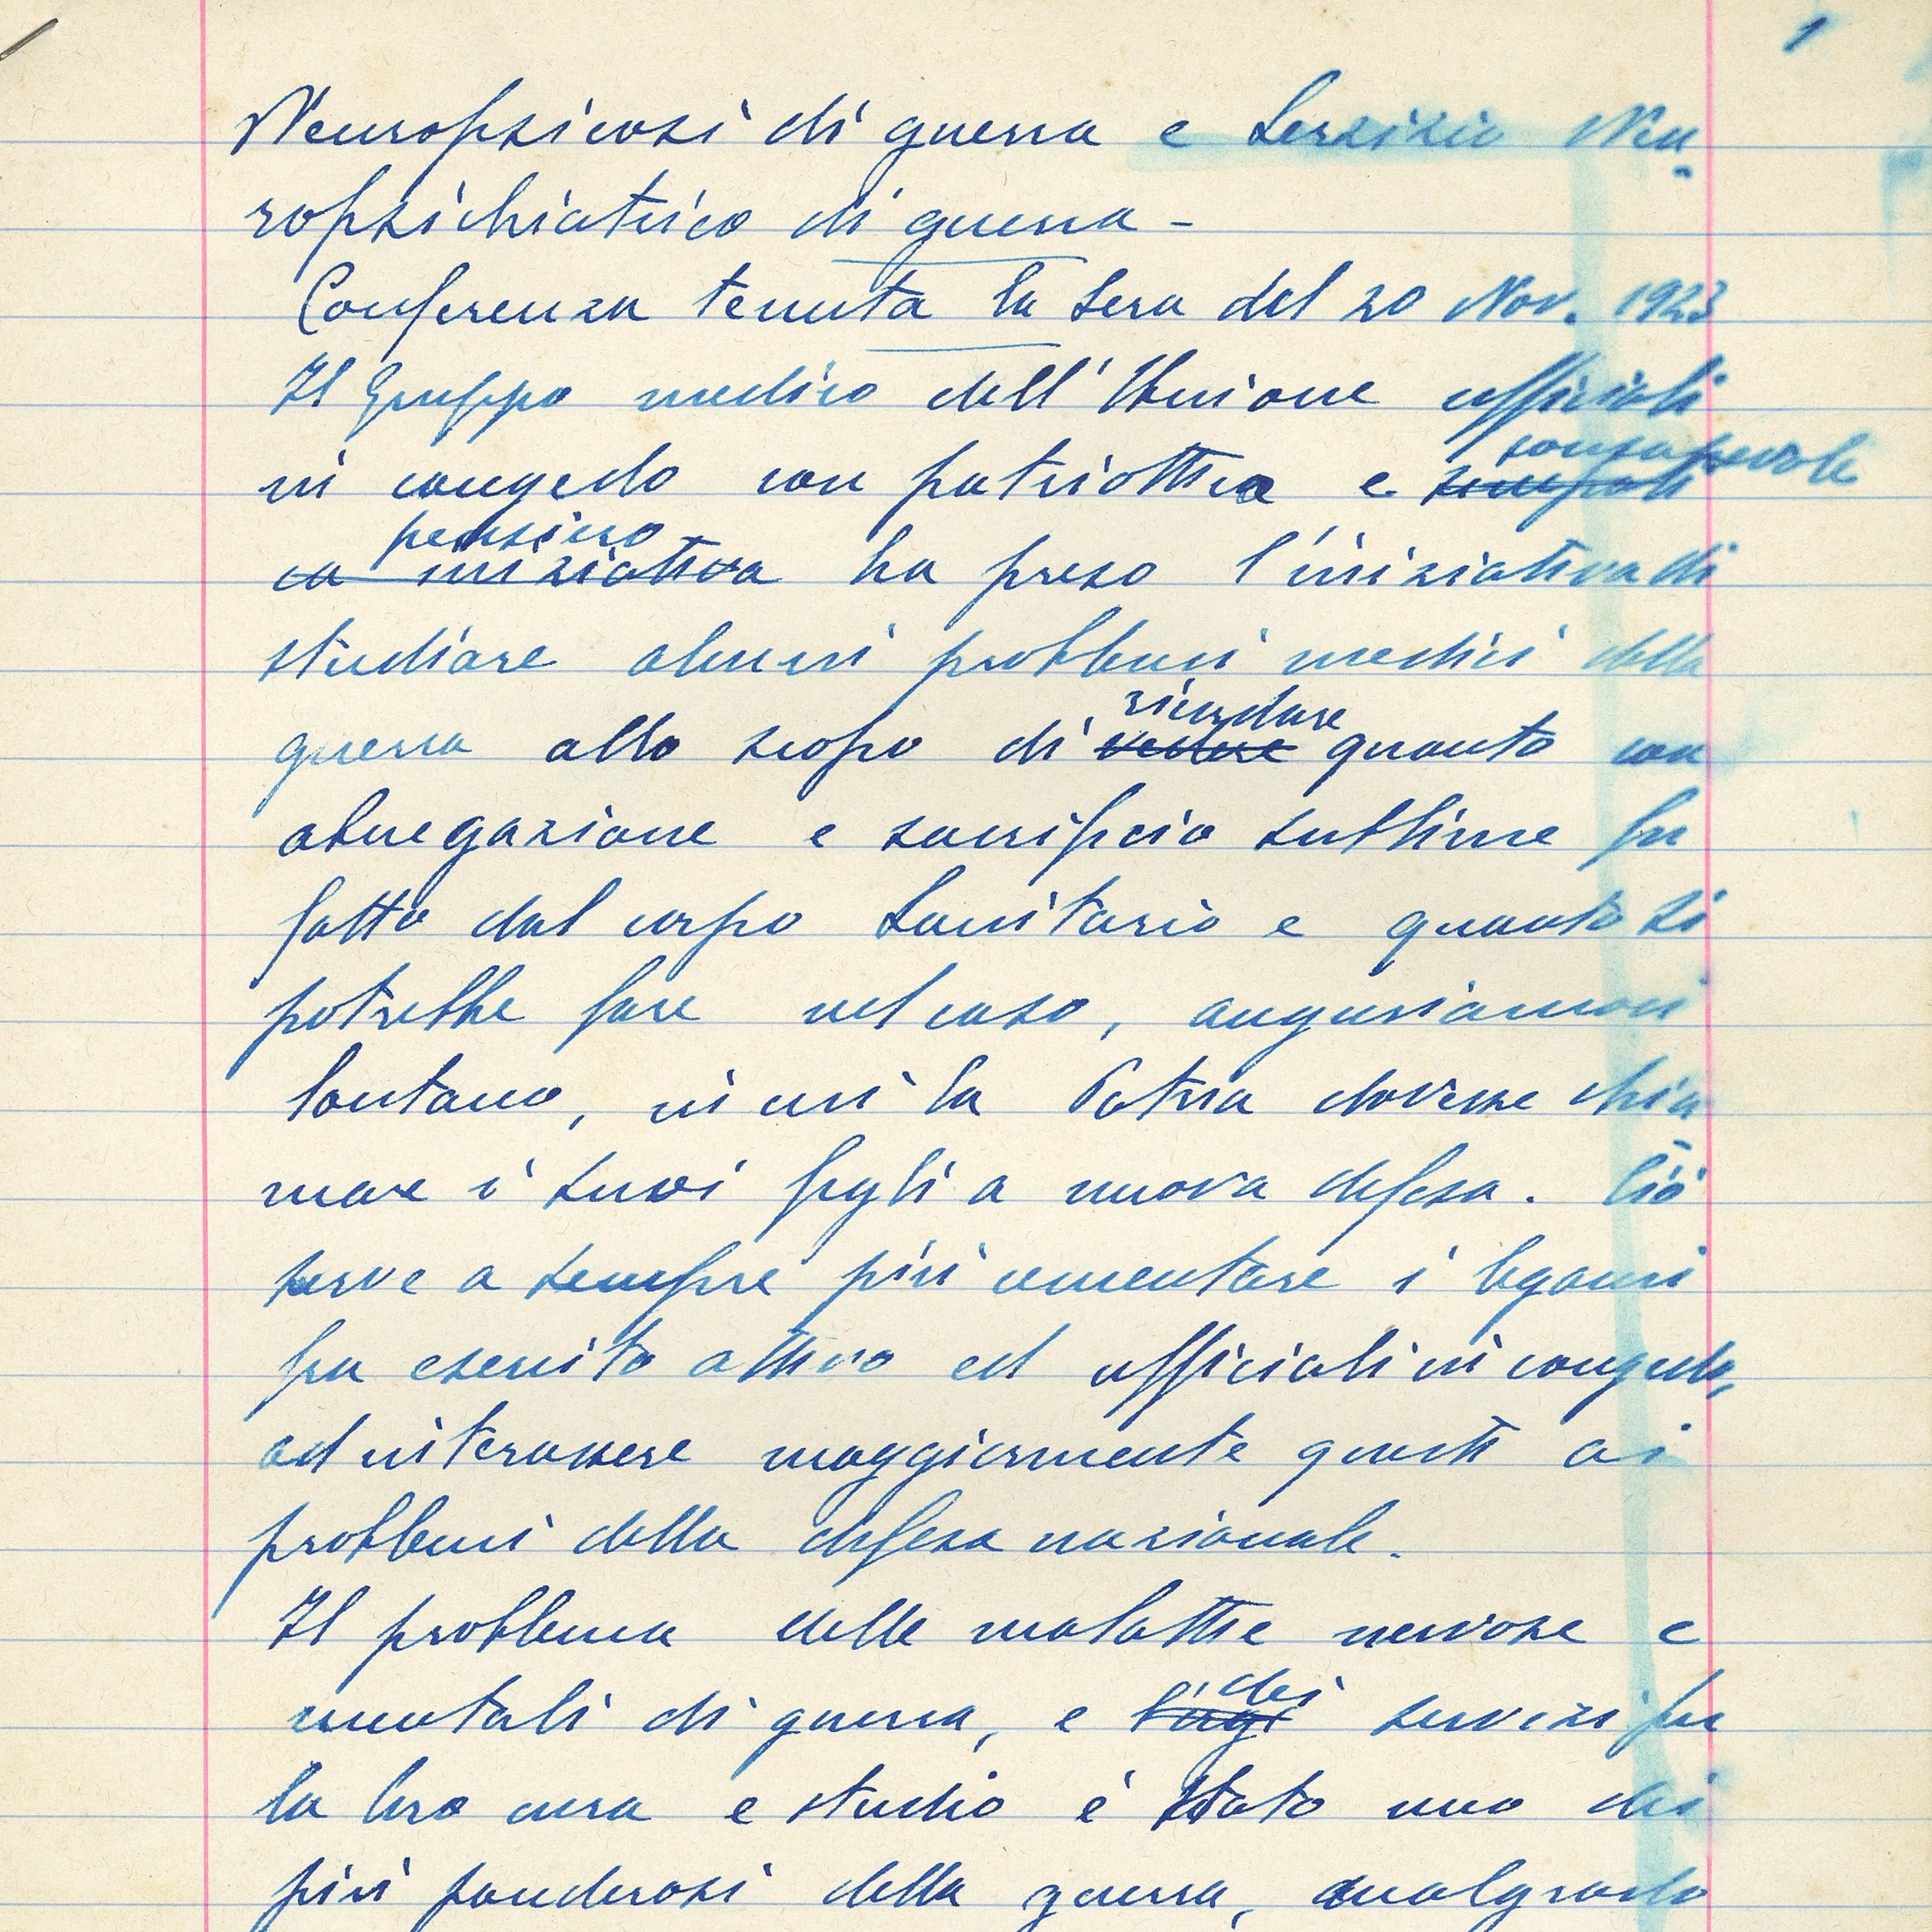 1
Neuropsicosi di guerra e Servizio Neu-
ropsichiatrico di guerra -
Conferenza tenuta la sera del 20 Nov. 1923
Il Gruppo medico dell'Unione ufficiali
consapevole
in congedo con patriottico e simpati
pensiero
ca iniziativa ha preso l'iniziativa di
studiare alcuni problemi medici della
ricordare
guerra allo scopo di vedere quanto con
abnegazione e sacrificio sublime fu
fatto dal corpo Sanitario e quanto si
potrebbe fare nel caso, auguriamoci
lontano, in cui la Patria dovesse chia-
mare i suoi figli a nuova difesa. Ciò
serve a sempre più cementare i legami
fra esercito attivo ed ufficiali in congedo,
ad interessere maggiormente questi ai
problemi della difesa nazionale.
Il problema delle malattie nervose e
dei
mentali di guerra, e servizi per
la loro cura e studio è stato uno dei
più ponderosi della guerra, malgrado